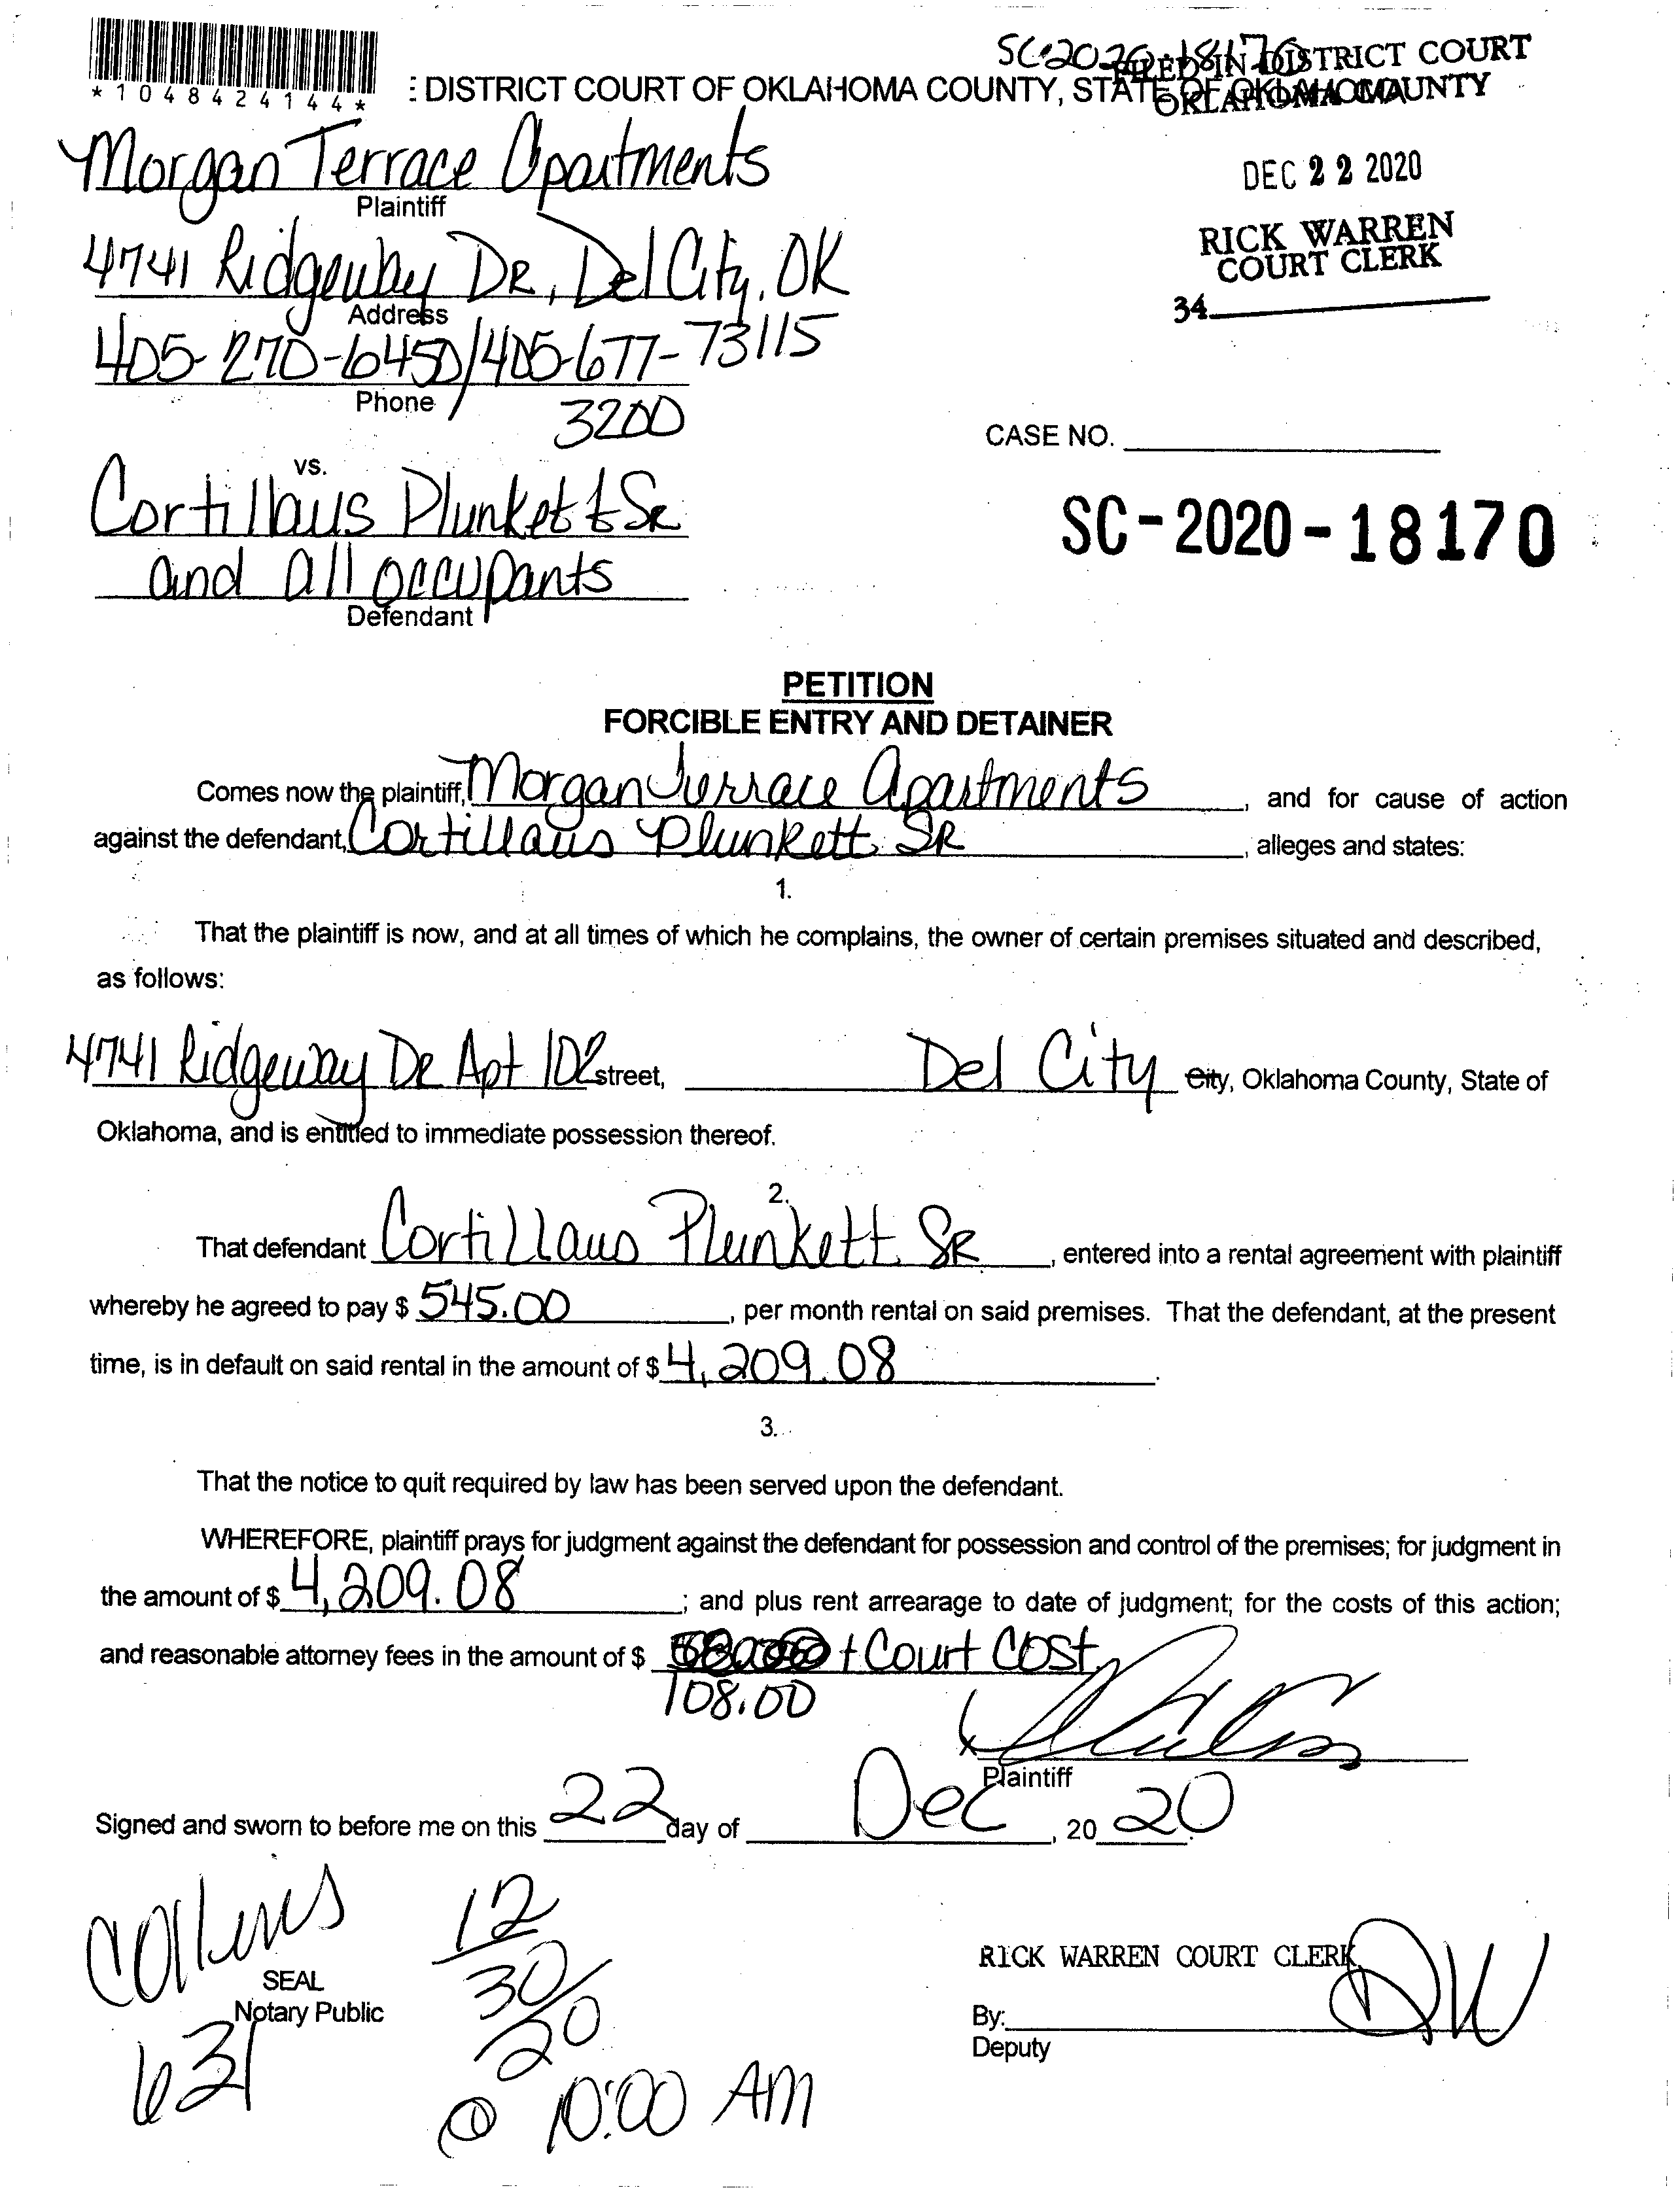 SC-2020-18170
FILED IN DISTRICT COURT
OKLAHOMA COUNTY
*1048424144*
DISTRICT COURT OF OKLAHOMA COUNTY, STATE OF OKLAHOMA
DEC 22 2020
RICK WARREN
COURT CLERK
34
Morgan Terrace Apartments
Plaintiff
4741 Ridgeway DR, Del City, OK
Address
73115
405-270-6450/405-677-
Phone
3200
CASE NO.
vs.
SC-2020-18170
Cortillaus Plunkett SR
and all occupants
Defendant
PETITION
FORCIBLE ENTRY AND DETAINER
Comes now the plaintiff, Morgan Terrace Apartments, and for cause of action
against the defendant, Cortillaus Plunkett SR, alleges and states:
1.
That the plaintiff is now, and at all times of which he complains, the owner of certain premises situated and described,
as follows:
4741 Ridgeway DR Apt 102 street, Del City City, Oklahoma County, State of
Oklahoma, and is entitled to immediate possession thereof.
2.
That defendant Cortillaus Plunkett SR, entered into a rental agreement with plaintiff
whereby he agreed to pay $ 545.00, per month rental on said premises. That the defendant, at the present
time, is in default on said rental in the amount of $ 4,209.08.
3.
That the notice to quit required by law has been served upon the defendant.
WHEREFORE, plaintiff prays for judgment against the defendant for possession and control of the premises; for judgment in
the amount of $ 4,209.08; and plus rent arrearage to date of judgment; for the costs of this action;
and reasonable attorney fees in the amount of $ + Court Cost
108.00
x
Plaintiff
Signed and sworn to before me on this 22 day of Dec, 20 20.
Collens
SEAL
Notary Public
631
12
30/
20
@ 10:00 AM
RICK WARREN COURT CLERK
By:
Deputy